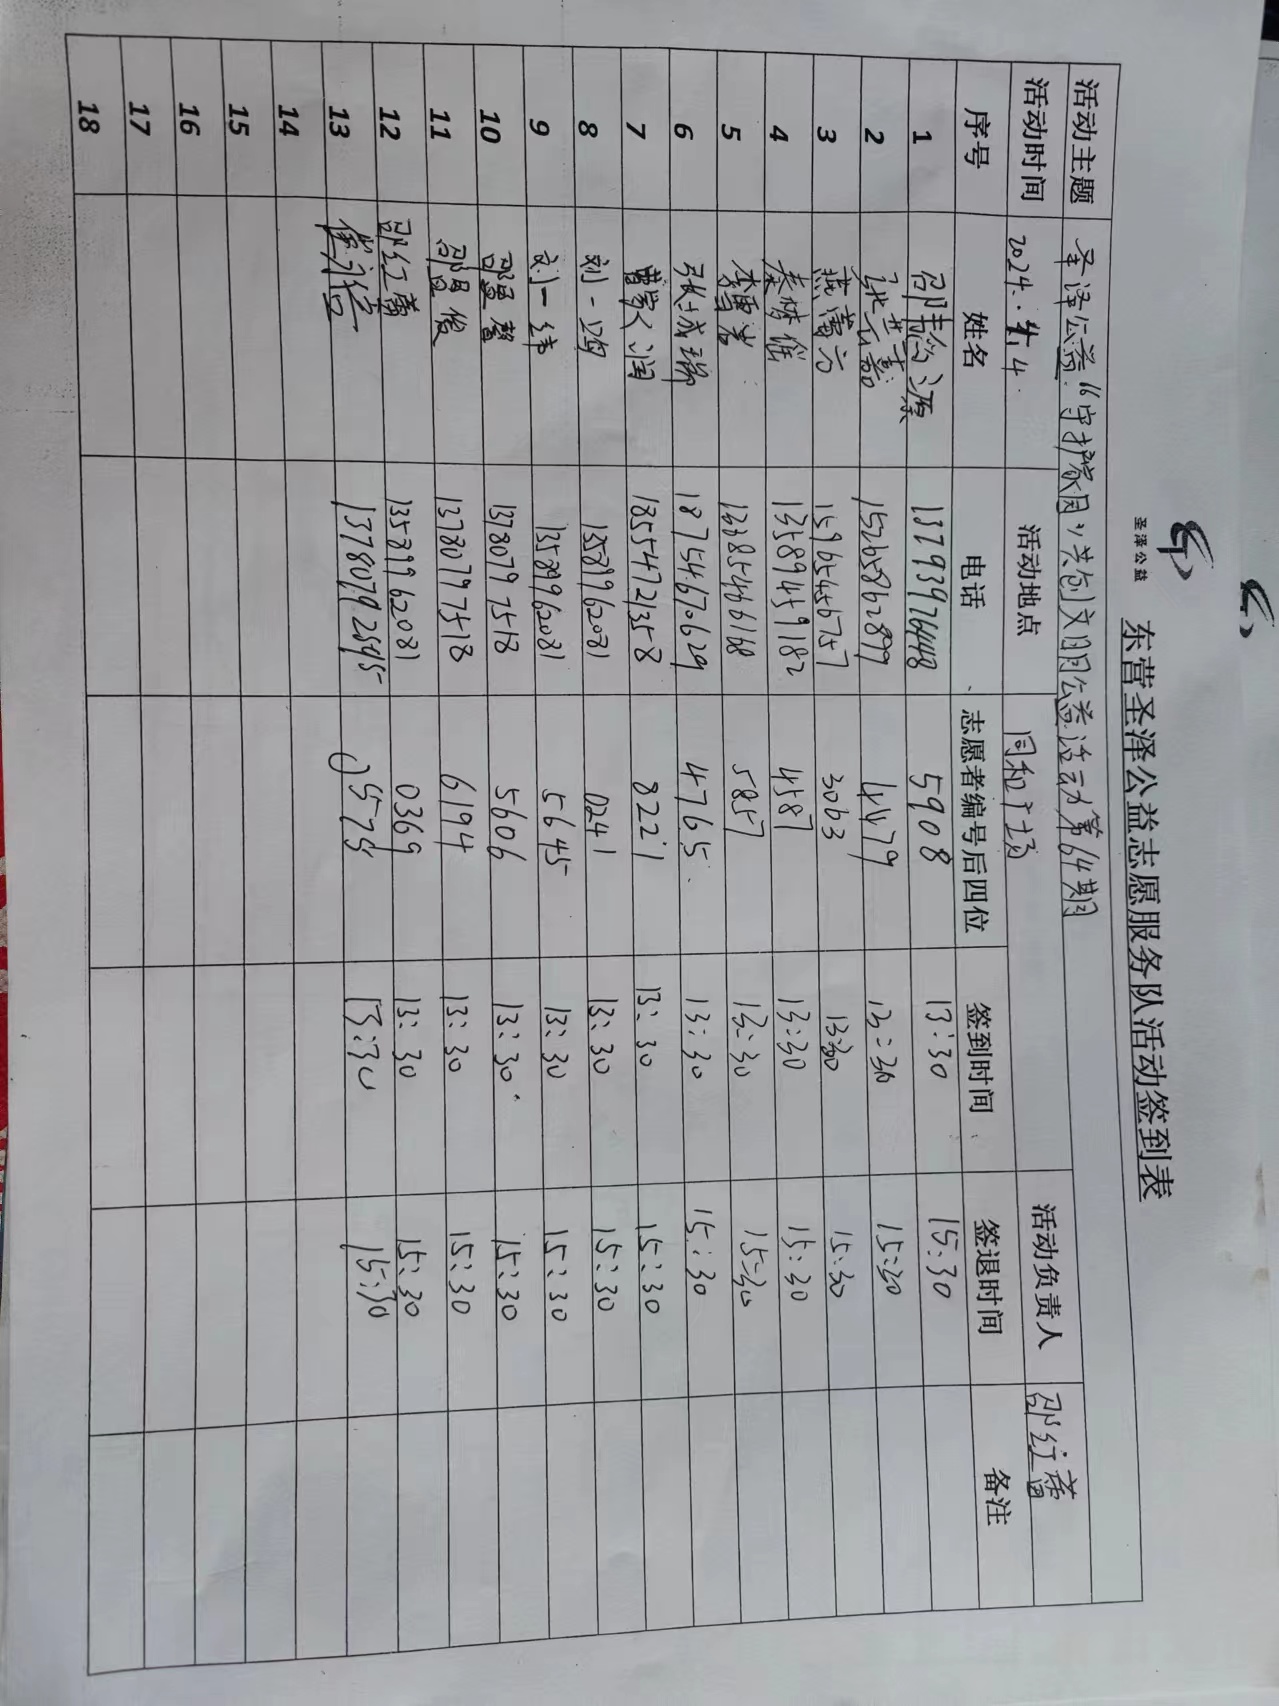 圣泽公益
东营圣泽公益志愿服务队活动签到表
活动主题 圣泽公益“守护家园,共创文明”公益活动第64期
活动时间 2024. 4 活动地点 同和广场 活动负责人 邵红蕾
序号 姓名 电话 志愿者编号后四位 签到时间 签退时间 备注
1 13793976448 5908 13:30 15:30
2 15265862899 4479 13:30 15:30
3 15965456757 3063 13:30 15:30
4 秦梦维 13589459182 4587 13:30 15:30
5 李雪岩 13385466168 5857 13:30 15:30
6 张城瑞 18754670629 4765 13:30 15:30
7 18554721358 8221 13:30 15:30
8 刘一鸣 13589962081 0241 13:30 15:30
9 刘一纬 13589962081 5645 13:30 15:30
10 邵昱馨 13780797518 5606 13:30 15:30
11 邵昱俊 13780797518 6194 13:30 15:30
12 邵红蕾 13589962081 0369 13:30 15:30
13 13780792945 0575 13:30 15:30
14
15
16
17
18